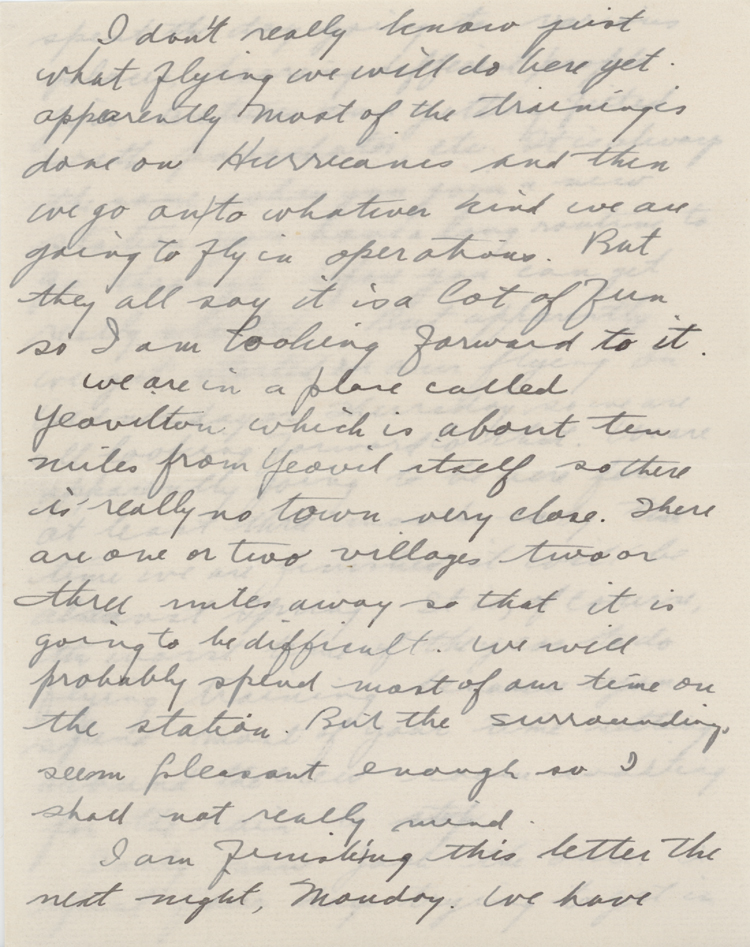 I don't really know just
what flying we will do here yet.
apparently most of the training is
done on Hurricanes and then
we go on to whatever kind we are
going to fly in operations. But
they all say it is a lot of fun
so I am looking forward to it.
we are in a place called
Yeovilton which is about ten
miles from Yeovil itself so there
is really no town very close. There
are one or two villages two or
three miles away so that it is
going to be difficult. We will
probably spend most of our time on
the station. But the surroundings
seem pleasant enough so I
shall not really mind.
I am finishing this letter the
next night, Monday. We have